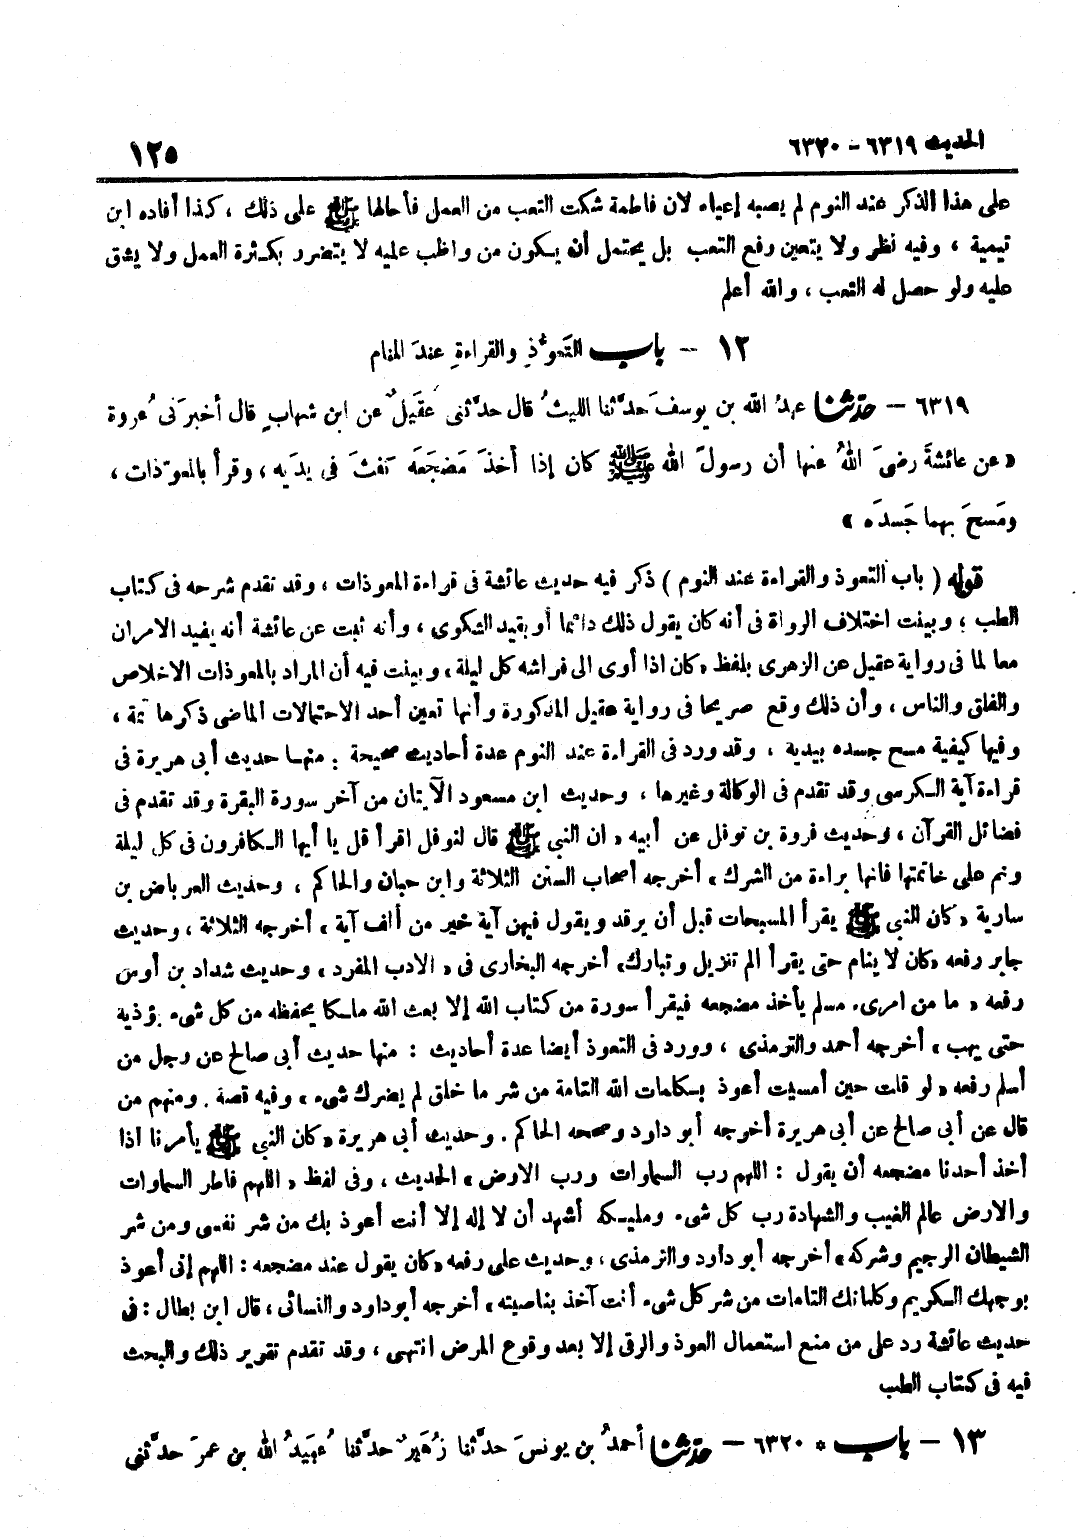 الحديث ٦٣١٩ - ٦٣٢٠
١٢٥
على هذا الذكر عند النوم لم يصبه إعياء لان فاطمة شكت التعب من العمل فأحالها ﷺ على ذلك ، كذا أفاده ابن
تيمية ، وفيه نظر ولا يتعين رفع التعب بل يحتمل أن يكون من واظب عليه لا يتضرر بكثرة العمل ولا يشق
عليه ولو حصل له التعب ، والله أعلم
١٢ - باب التعوُّذِ والقراءةِ عندَ المنام
٦٣١٩ - حدّثنا عبدُ الله بن يوسفَ حدَّثنا الليثُ قال حدَّثنى عُقَيلٌ عن ابن شهابٍ قال أخبرَنى عُروة
« عن عائشةَ رضىَ اللهُ عنها أن رسولَ الله ﷺ كان إذا أخذَ مَضجَعَه نفثَ فى يدَيه ، وقرأ بالمعوّذات ،
ومَسحَ بهما جَسدَه »
قوله ( باب التعوذ والقراءة عند النوم ) ذكر فيه حديث عائشة فى قراءة المعوذات ، وقد تقدم شرحه فى كتاب
الطب ؛ وبينت اختلاف الرواة فى أنه كان يقول ذلك دائما أو بقيد الشكوى ، وأنه ثبت عن عائشة أنه يفيد الامران
معا لما فى رواية عقيل عن الزهرى بلفظ « كان اذا أوى الى فراشه كل ليلة ، وبينت فيه أن المراد بالمعوذات الاخلاص
والفلق والناس ، وأن ذلك وقع صريحا فى رواية عقيل المذكورة وأنها تعين أحد الاحتمالات الماضى ذكرها ثمة ،
وفيها كيفية مسح جسده بيديه ، وقد ورد فى القراءة عند النوم عدة أحاديث صحيحة : منها حديث أبى هريرة فى
قراءة آية الكرسى وقد تقدم فى الوكالة وغيرها ، وحديث ابن مسعود الآيتان من آخر سورة البقرة وقد تقدم فى
فضائل القرآن ، وحديث فروة بن نوفل عن أبيه « ان النبى ﷺ قال لنوفل اقرأ قل يا أيها الكافرون فى كل ليلة
ونم على خاتمتها فانها براءة من الشرك » أخرجه أصحاب السنن الثلاثة وابن حبان والحاكم ، وحديث العرباض بن
سارية « كان النبى ﷺ يقرأ المسبحات قبل أن يرقد ويقول فيهن آية خير من ألف آية » أخرجه الثلاثة ، وحديث
جابر رفعه « كان لا ينام حتى يقرأ الم تنزيل وتبارك » أخرجه البخارى فى « الادب المفرد » وحديث شداد بن أوس
رفعه « ما من امرىء مسلم يأخذ مضجعه فيقرأ سورة من كتاب الله إلا بعث الله ملكا يحفظه من كل شىء يؤذيه
حتى يهب » أخرجه أحمد والترمذى ، وورد فى التعوذ أيضا عدة أحاديث : منها حديث أبى صالح عن رجل من
أسلم رفعه « لو قلت حين أمسيت أعوذ بكلمات الله التامة من شر ما خلق لم يضرك شىء » وفيه قصة . ومنهم من
قال عن أبى صالح عن أبى هريرة أخرجه أبو داود وصححه الحاكم . وحديث أبى هريرة « كان النبى ﷺ يأمرنا اذا
أخذ أحدنا مضجعه أن يقول : اللهم رب السماوات ورب الارض » الحديث ، وفى لفظ « اللهم فاطر السماوات
والارض عالم الغيب والشهادة رب كل شىء ومليكه أشهد أن لا إله إلا أنت أعوذ بك من شر نفسى ومن شر
الشيطان الرجيم وشركه » أخرجه أبو داود والترمذى ، وحديث على رفعه « كان يقول عند مضجعه : اللهم إنى أعوذ
بوجهك الكريم وكلماتك التامات من شر كل شىء أنت آخذ بناصيته » أخرجه أبو داود والنسائى ، قال ابن بطال : فى
حديث عائشة رد على من منع استعمال العوذ والرقى إلا بعد وقوع المرض انتهى ، وقد تقدم تقرير ذلك والبحث
فيه فى كتاب الطب
١٣ - باب * ٦٣٢٠ - حدّثنا أحمدُ بن يونسَ حدَّثنا زُهَيرٌ حدَّثنا عُبَيدُ الله بن عمرَ حدَّثنى